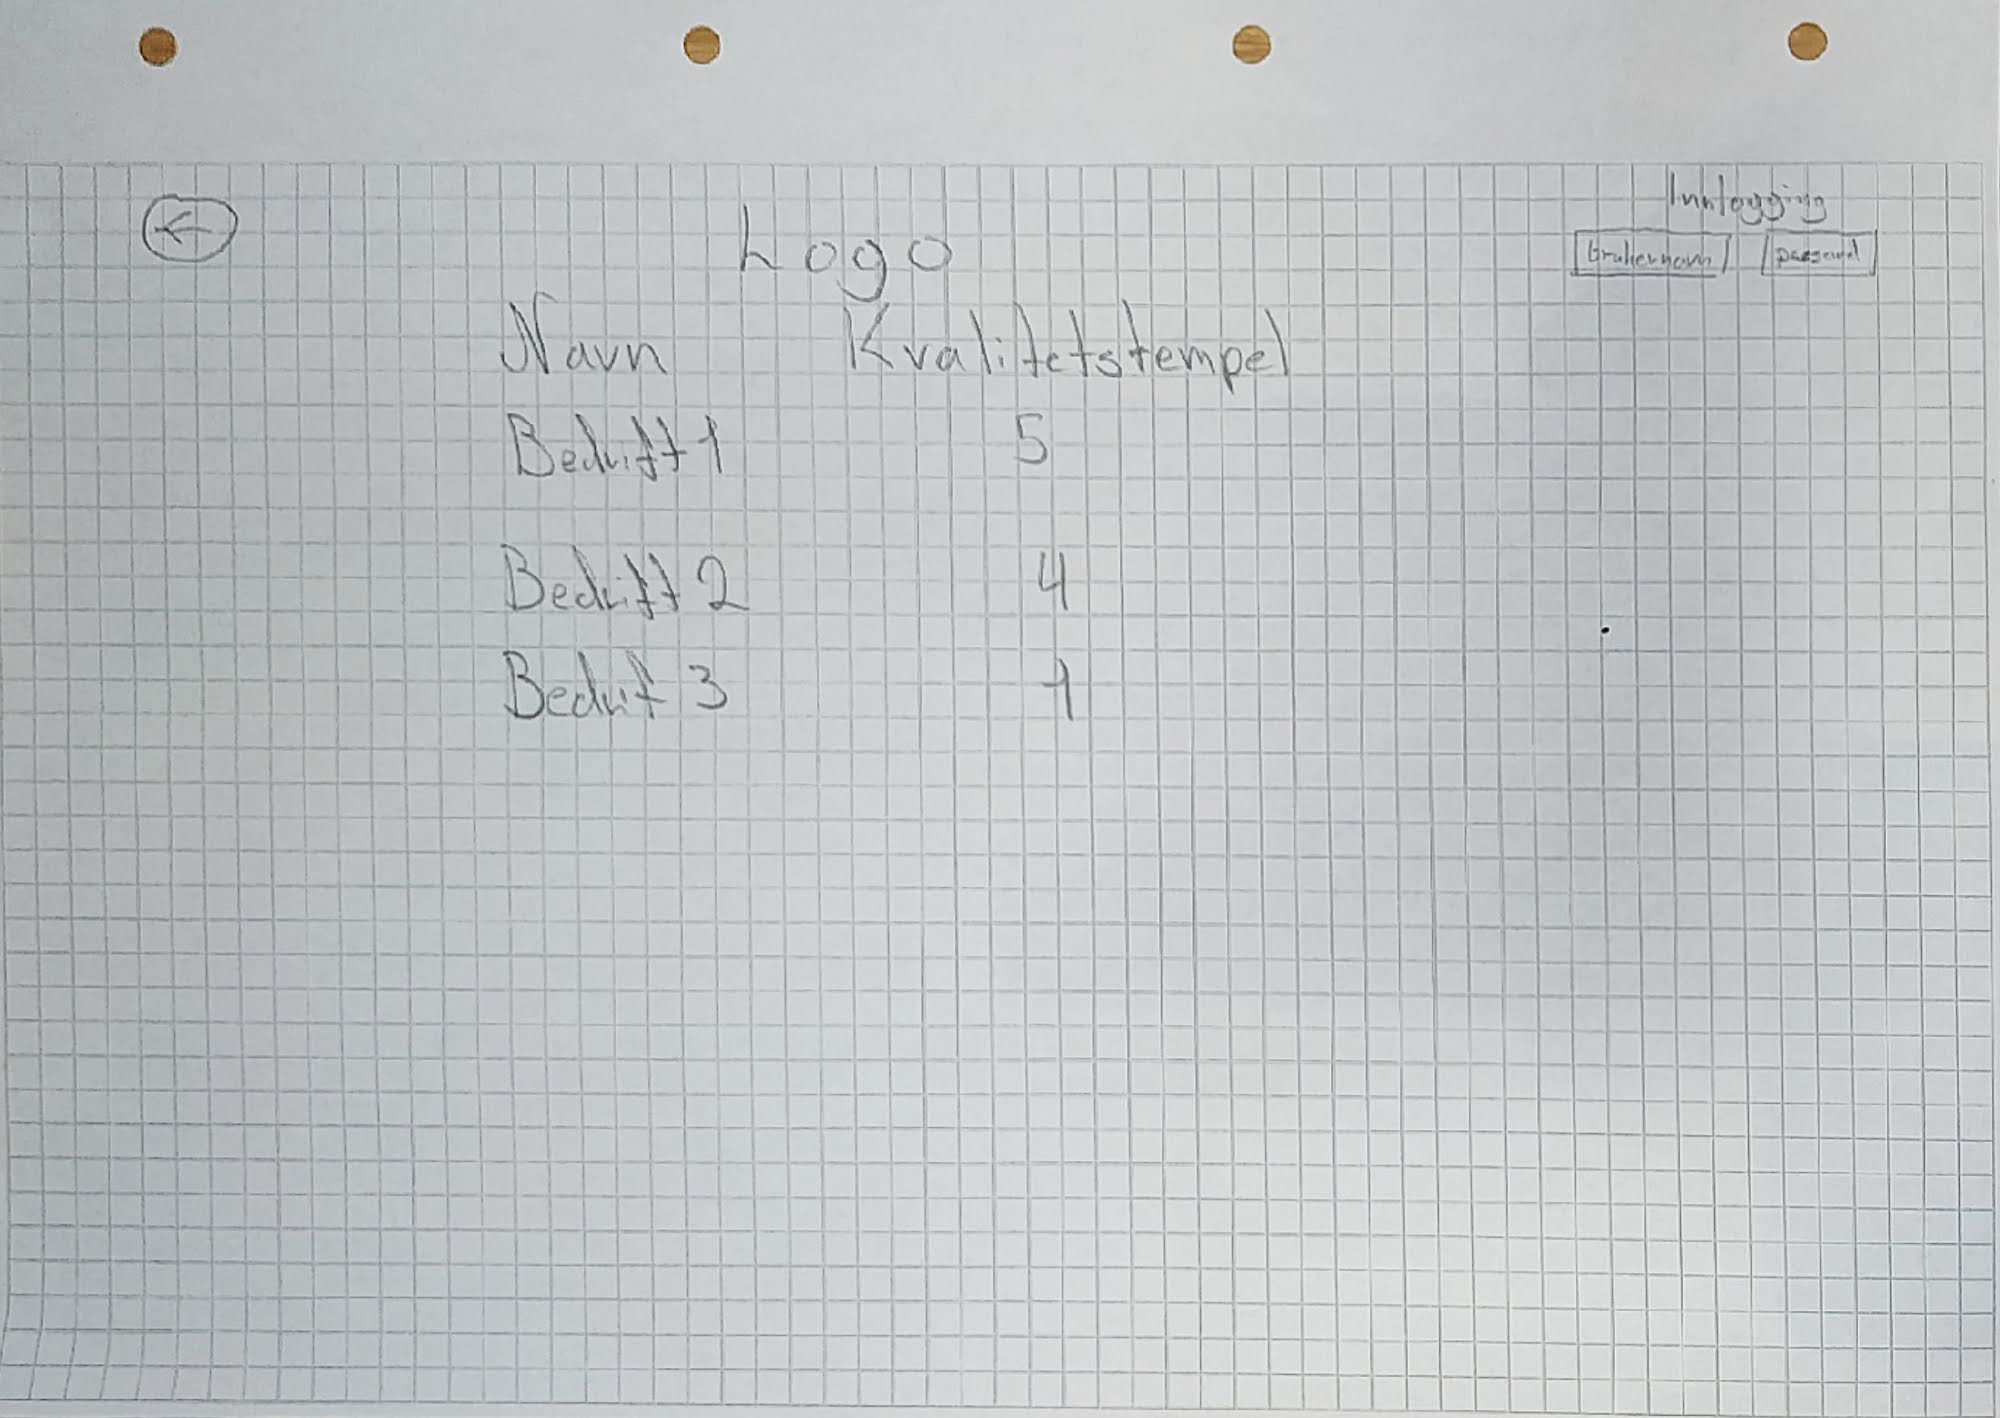 Innlogging
Logo
Brukernavn passord
Navn Kvalitetstempel
Bedrift 1 5
Bedrift 2 4
Bedrift 3 1